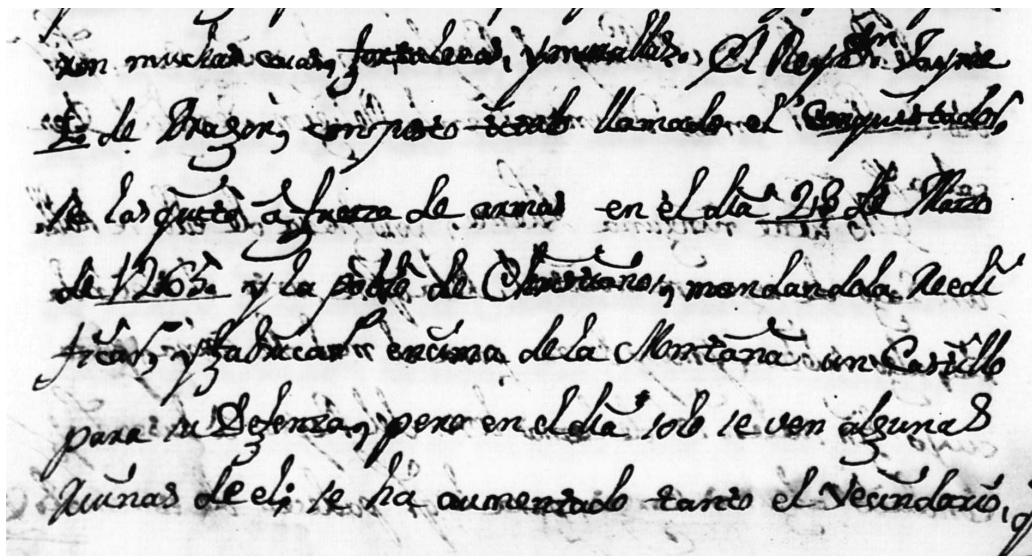 con muchas casas, fortalezas, y murallas, El Rey Dn. Jayme
1o. de Aragon, con justo titulo llamado el Conquistador,
se las quitó á fuerza de armas en el dia 28 de Marzo
de 1265. y la pobló de Christianos, mandandola reedi
ficar, y fabricar encima de la Montaña un Castillo
para su Defenza, pero en el dia solo se ven algunas
ruinas de el; se ha aumentado tanto el Vecindario, q